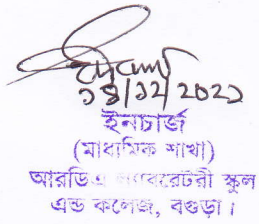 ১৪/১২/২০২১
ইনচার্জ
(মাধ্যমিক শাখা)
আরডিএ ল্যাবরেটরী স্কুল
এন্ড কলেজ, বগুড়া।